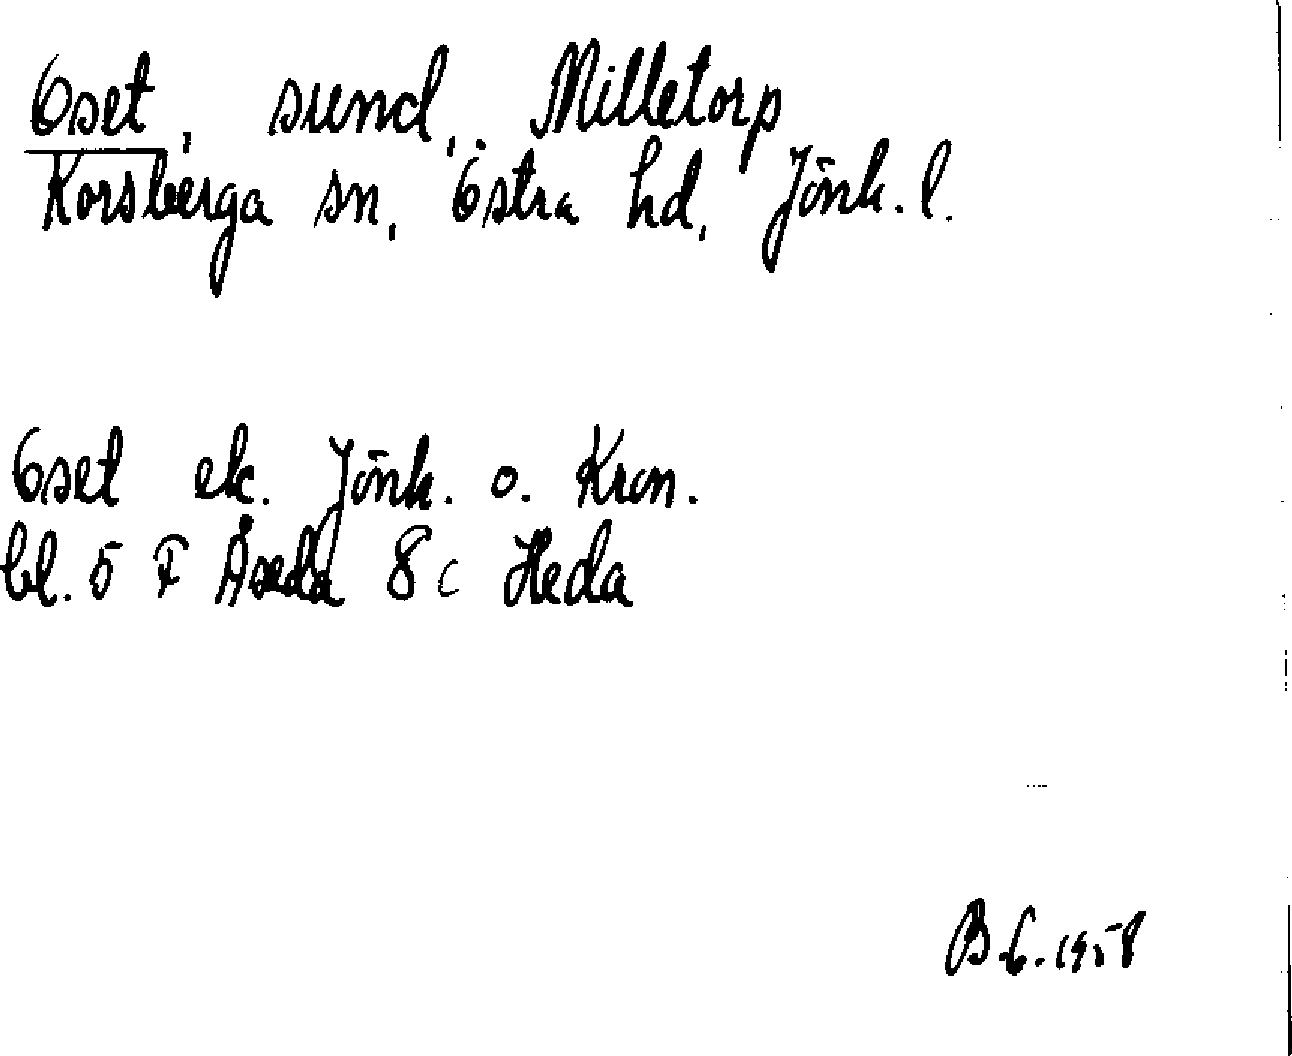 Oset, sund, Milletorp
Korsberga sn, Östra hd, Jönk. l.
Oset ek. Jönk. o. Kron.
bl. 5 F Åseda 8c Heda
B.G. 1958